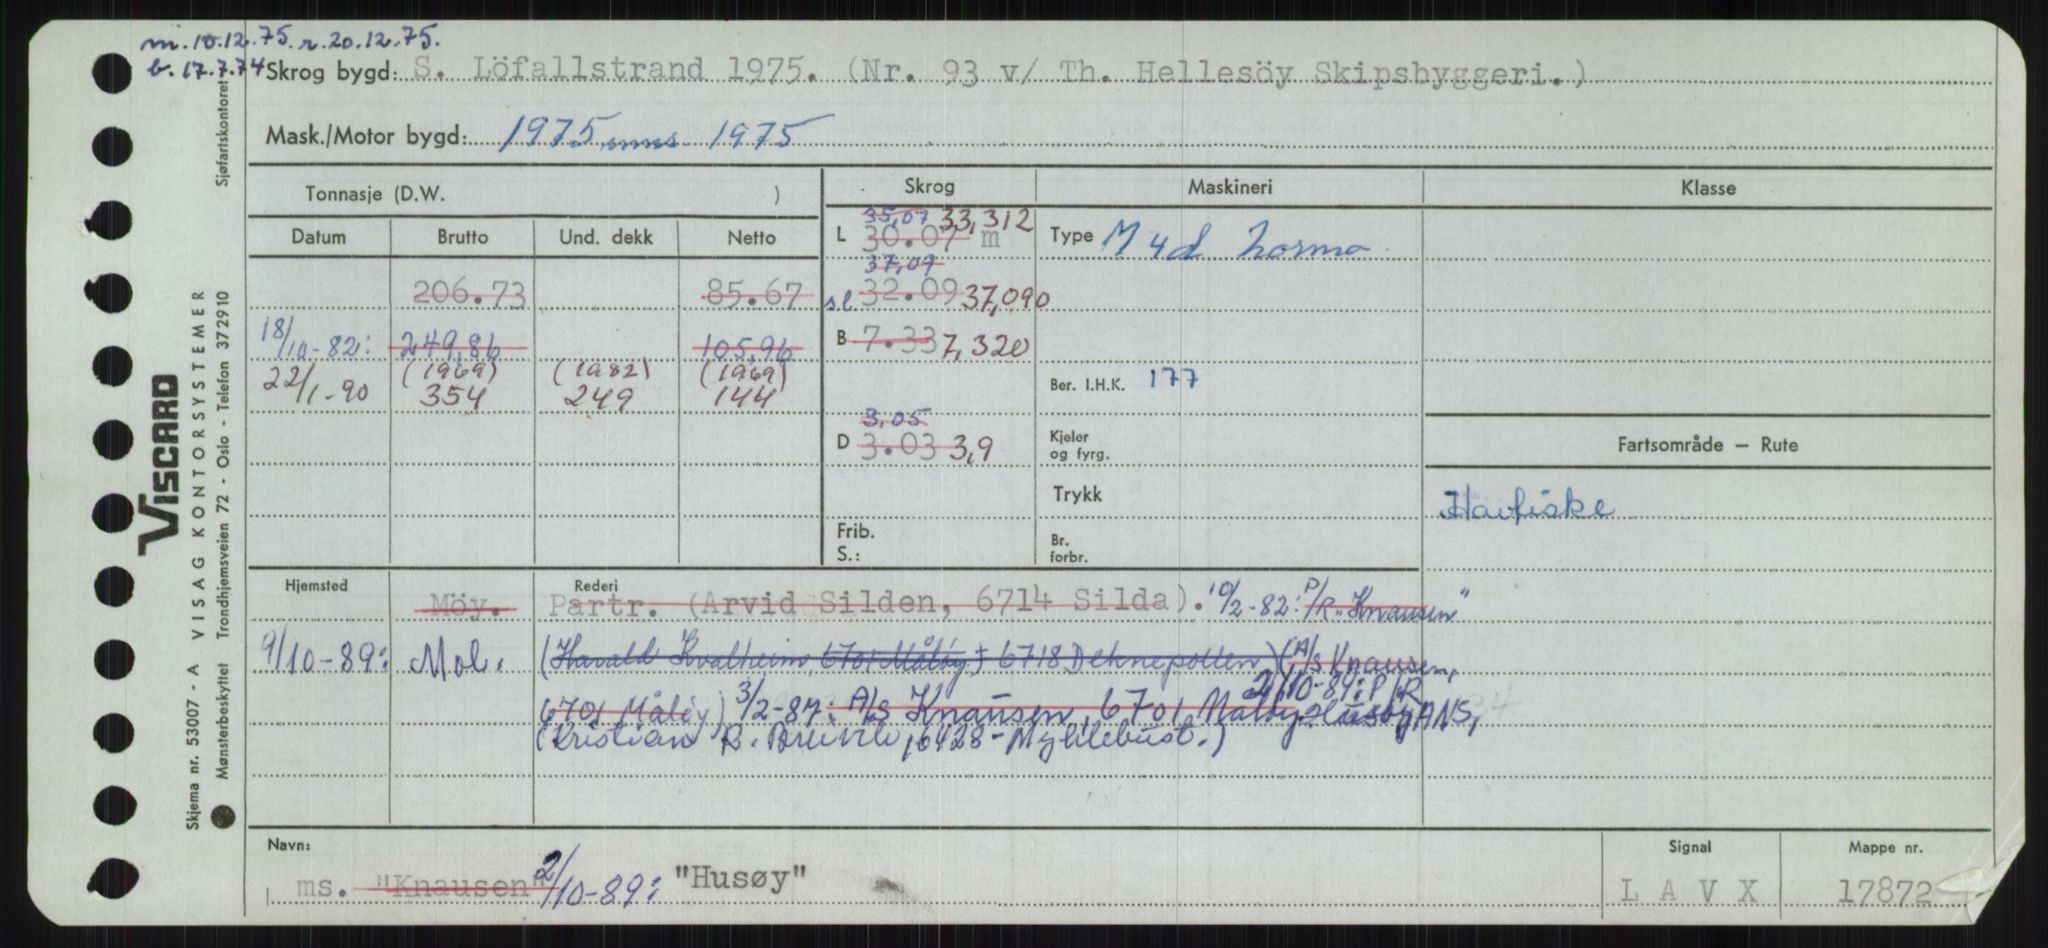 m. 10.12.75. r. 20.12.75.
b. 17.7.74
Skrog bygd: S. Löfallstrand 1975. (Nr. 93 v/ Th. Hellesöy Skipsbyggeri.)
Mask./Motor bygd: 1975, inns. 1975
Tonnasje (D.W. ) Skrog Maskineri Klasse
Datum Brutto Und. dekk Netto
35,07 33,312
L 30.07 m Type M 4d Norma
37,09
206.73 85.67 sl 32.09 37,090
18/10-82: 249,86 105,96 B 7.33 7,320
(1969) (1982) (1969)
22/1-90 354 249 144 Ber. I.H.K. 177
3,05
D 3.03 3,9 Kjeler og fyrg. Fartsområde — Rute
Trykk
Havfiske
Frib. S.: Br. forbr.
Hjemsted Rederi
Möy. Partr. (Arvid Silden, 6714 Silda). 10/2-82: P/R "Knausen"
9/10-89: Mol. (Harald Kvalheim, 6701 Måløy, 6718 Deknepollen) (A/s Knausen,
2/10-89: P/R
6701 Måløy) 3/2-87: A/s Knausen, 6701 Måløy. Husøy ANS,
(Kristian R. 6428 - Myklebost.)
Navn: Signal Mappe nr.
ms. "Knausen" 2/10-89: "Husøy" L A V X 17872
VISCARD
Skjema nr. 53007 - A VISAG KONTORSYSTEMER
Mønsterbeskyttet Trondhjemsveien 72 - Oslo - Telefon 372910
Sjøfartskontoret